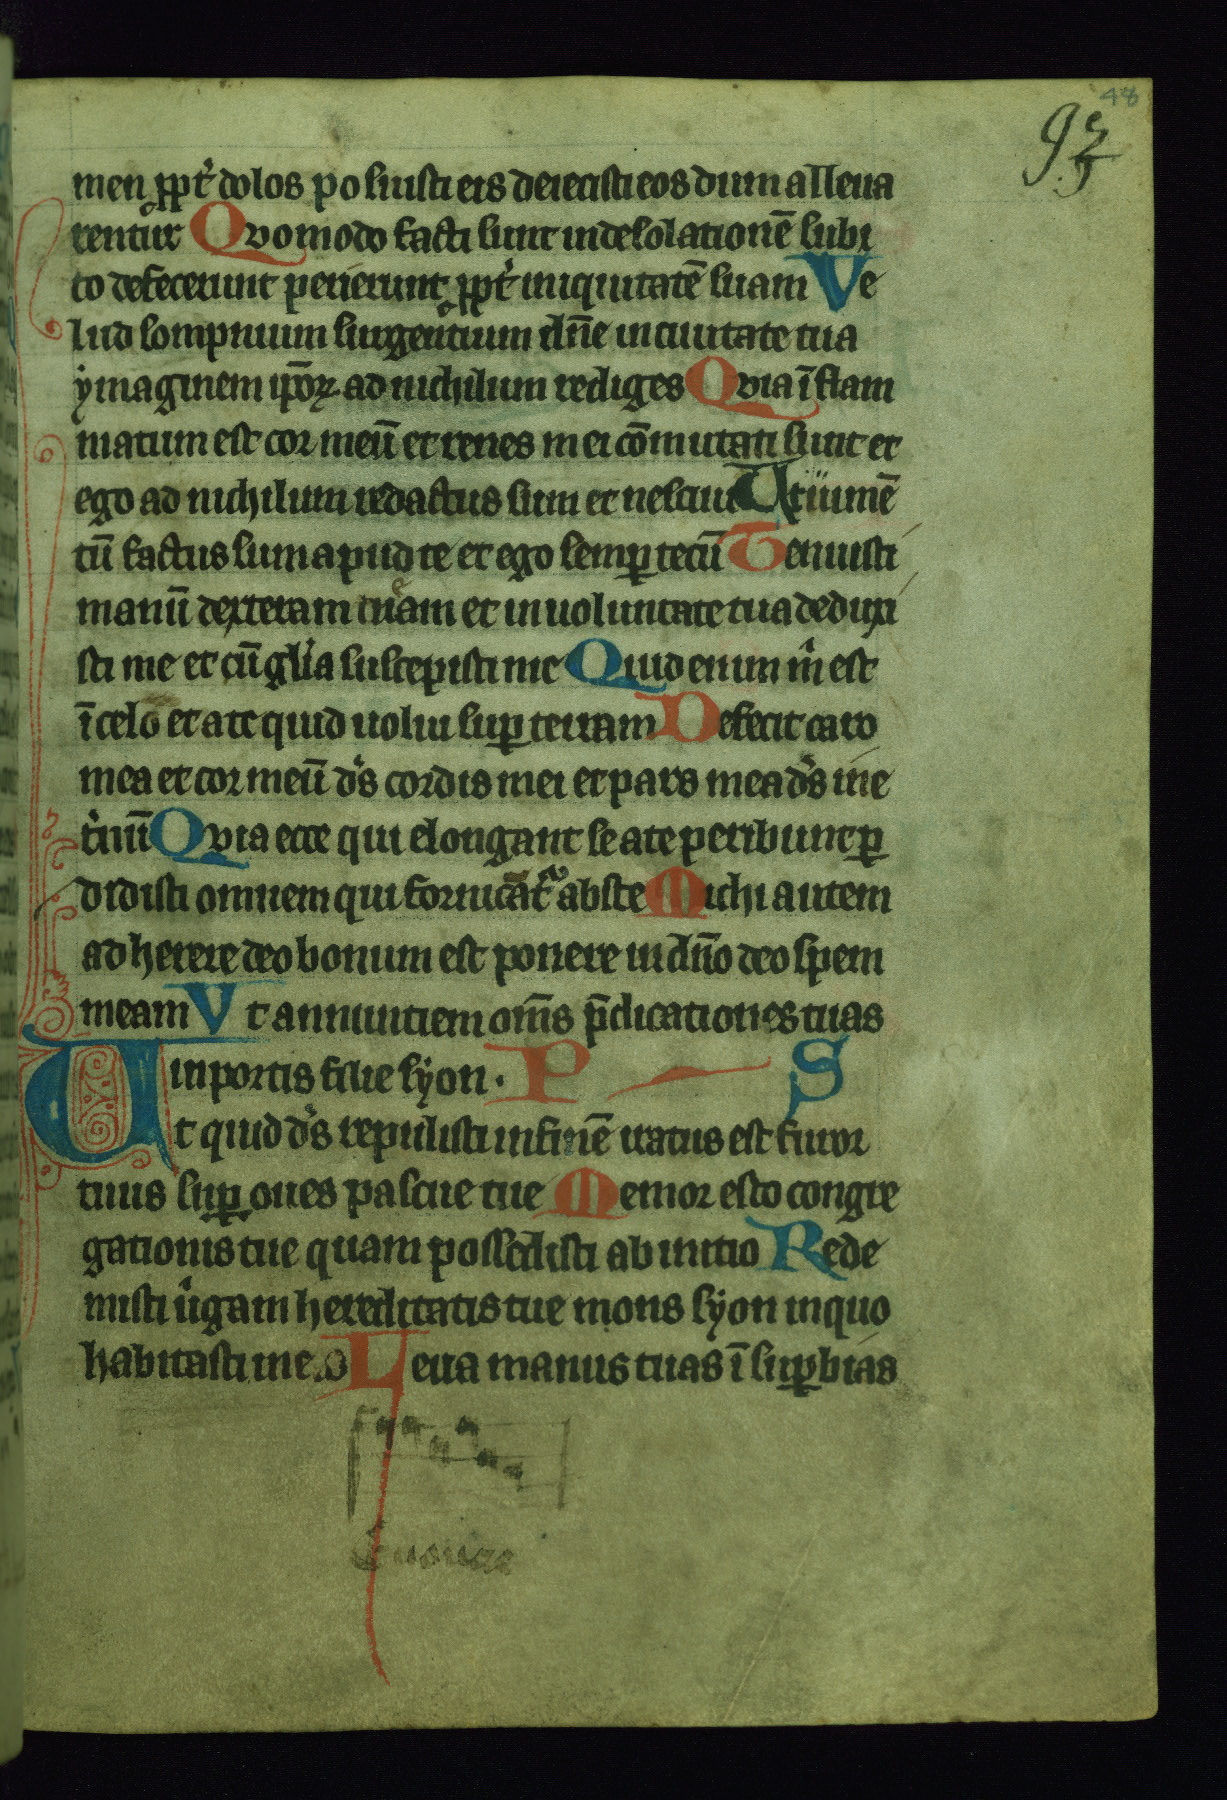 48
93
men ꝓpt̉ dolos posuisti eis deiecisti eos dum alleua
rentur Quomodo facti sunt in desolationē subi
to defecerunt perierunt ꝓpt̉ iniquitatē suam Ve
lud sompnium surgentium dn̄e in ciuitate tua
ẏmaginem ip̄oꝝ ad nichilum rediges Quia īflam
matum est cor meū et renes mei cōmutati sunt et
ego ad nichilum redactus sum et nesciui Ut iumē
tū factus sum apud te et ego semꝑ tecū Tenuisti
manū dexteram meam et in uoluntate tua deduxi
sti me et cū gl̉ia suscepisti me Quid enim m̉ est
ī celo et a te quid uolui suꝑ terram Defecit caro
mea et cor meū d̉s cordis mei et pars mea d̉s ine
t̉nū Quia ecce qui elongant se a te peribunt ꝑ
didisti omnem qui fornicat̉ abs te Michi autem
adherere deo bonum est ponere in dn̄o deo spem
meam Vt annuntiem om̄s p̄dicationes tuas
in portis filie sẏon · P S
Ut quid d̉s repulisti in finē iratus est furor
tuus suꝑ oues pascue tue Memor esto congre
gationis tue quam possedisti ab initio Rede
misti u̾gam hereditatis tue mons sẏon in quo
habitasti in eo Leua manus tuas ī suꝑbias